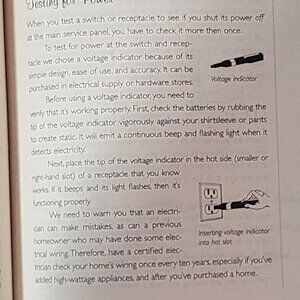 Testing for Power
When you test a switch or receptacle to see if you shut its power off
at the main service panel, you have to check it more then once.
To test for power at the switch and recep-
tacle we chose a voltage indicator because of its
simple design, ease of use, and accuracy. It can be
purchased in electrical supply or hardware stores.
Voltage indicator
Before using a voltage indicator, you need to
verify that it's working properly. First, check the batteries by rubbing the
tip of the voltage indicator vigorously against your shirtsleeve or pants
to create static. It will emit a continuous beep and flashing light when it
detects electricity.
Next, place the tip of the voltage indicator in the hot side (smaller or
right-hand slot) of a receptacle that you know
works. If it beeps and its light flashes, then it's
functioning properly.
We need to warn you that an electri-
cian can make mistakes, as can a previous
homeowner who may have done some elec-
trical wiring. Therefore, have a certified elec-
Inserting voltage indicator
into hot slot
trician check your home's wiring once every ten years, especially if you've
added high-wattage appliances, and after you've purchased a home.